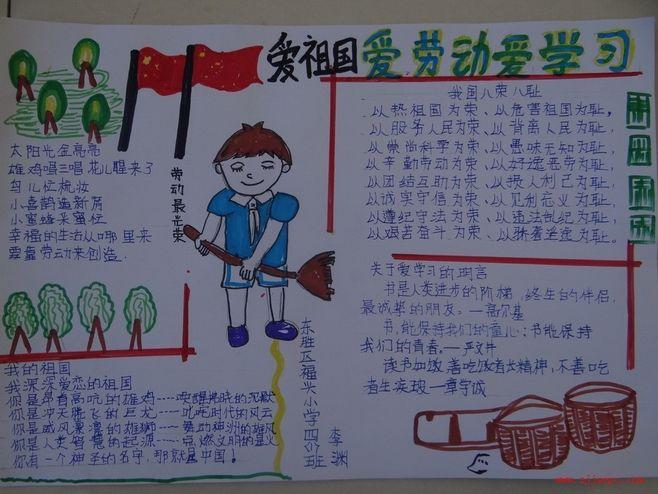 爱祖国爱劳动爱学习
太阳光金亮亮
雄鸡唱三唱花儿醒来了
鸟儿忙梳妆
小喜鹊造新房
小蜜蜂采蜜忙
幸福的生活从哪里来
要靠劳动来创造.
劳动最光荣
我国八荣八耻
以热爱祖国为荣、以危害祖国为耻,
以服务人民为荣、以背离人民为耻,
以崇尚科学为荣、以愚昧无知为耻,
以辛勤劳动为荣、以好逸恶劳为耻,
以团结互助为荣、以损人利己为耻,
以诚实守信为荣、以见利忘义为耻,
以遵纪守法为荣、以违法乱纪为耻,
以艰苦奋斗为荣、以骄奢淫逸为耻。
关于爱学习的明言
书是人类进步的阶梯,终生的伴侣,
最诚挚的朋友。—高尔基
书,能保持我们的童心;书能保持
我们的青春。—严文井
读书如饭,善吃饭者长精神,不善吃
者生疾
我的祖国
我深深爱恋的祖国
你是昂首高吭的雄鸡----唤醒拂晓的沉默
你是冲天腾飞的巨龙----叱咤时代的风云
你是威风凛凛的雄狮----舞动神州的雄风
你是人类智慧的起源----点燃文明的星火
你有一个神圣的名字,那就是中国!
东胜区福兴小学四(1)班
李渊